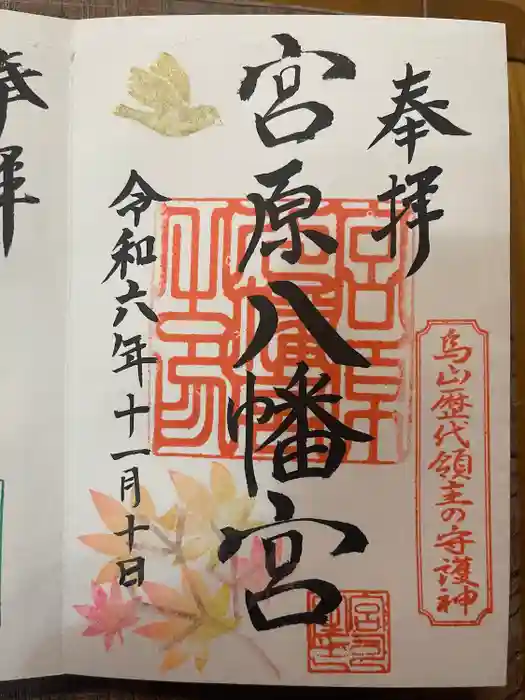 奉拝
烏山歴代領主の守護神
宮原八幡宮
令和六年十一月十日
奉拝